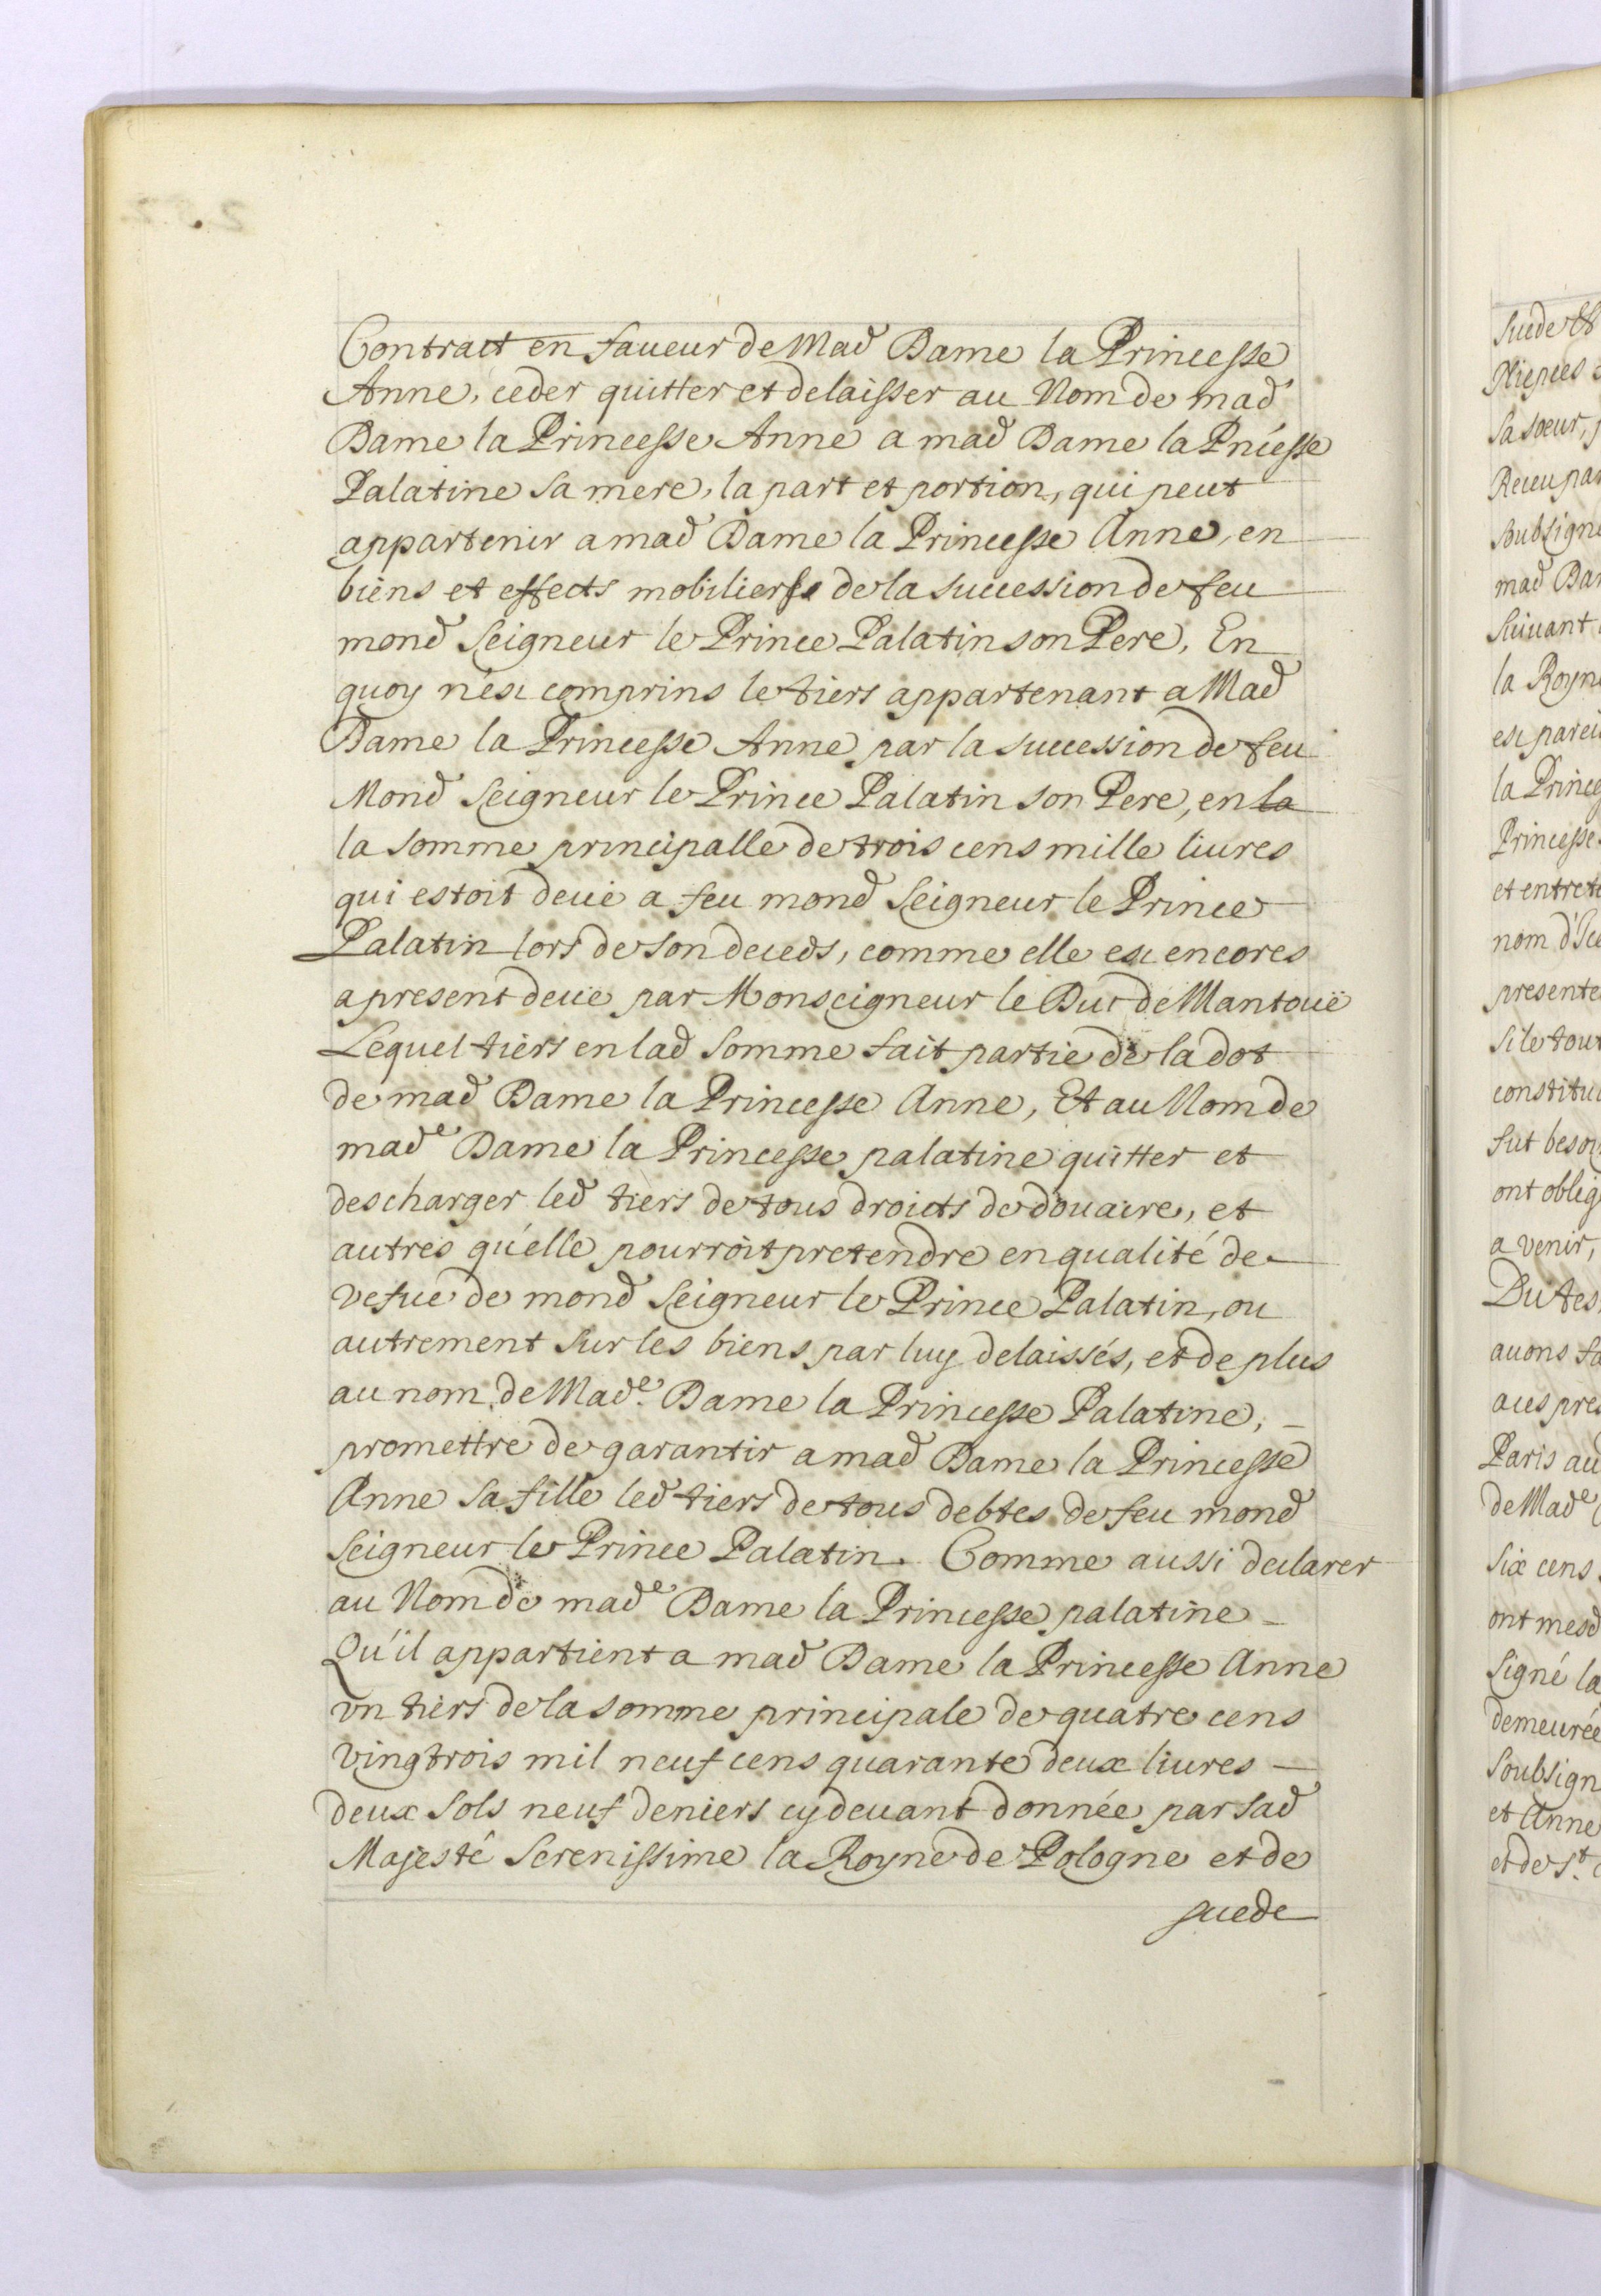 Contract en faueur de Mad Dame la Princesse
Anne, ceder quitter et delaisser au Nom de mad
Dame la Princesse Anne a mad Dame la Prncesse
Palatine sa mere, la part et portion, qui peut
appartenir a mad Dame la Princesse Anne, en
biens et effects mobiliers de la succession de feu
mond Seigneur le Prince Palatin son Pere, En
quoy n'est comprins le tiers appartenant a Mad
Dame la Princesse Anne par la succession de feu
Mond Seigneur le Prince Palatin son Pere, en la
la somme principalle de trois cens mille liures
qui estoit deüe a feu mond Seigneur le Prince
Palatin lors de son deceds, comme elle est encores
a present deüe par Monseigneur le Duc de Mantoüe
Lequel tiers en lad somme fait partie de la dot
de mad Dame la Princesse Anne, Et au Nom de
made Dame la Princesse palatine quitter et
descharger led tiers de tous droicts de doüaire, et
autres qu'elle pourroit pretendre en qualité de
vefue de mond Seigneur le Prince Palatin, ou
autrement sur les biens par luy delaissés, et de plus
au nom de Made. Dame la Princesse Palatine,
promettre de garantir a mad Dame la Princesse
Anne sa fille led tiers de tous debtes de feu mond
Seigneur le Prince Palatin. Comme aussi declarer
au Nom de made Dame la Princesse palatine
Qu'il appartient a mad Dame la Princesse Anne
vn tiers de la somme principale de quatre cens
vingtrois mil neuf cens quarante deux liures
deux sols neuf deniers cy deuant donnée par sad
Majesté Serenissime la Royne de Pologne et de
suede